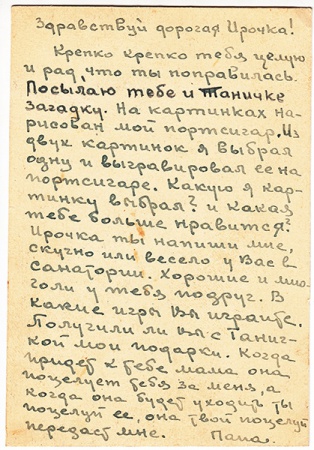 Здравствуй дорогая Ирочка!
Крепко крепко тебя целую
и рад, что ты поправилась.
Посылаю тебе и Таничке
загадку. На картинках на-
рисован мой портсигар. Из
двух картинок я выбрал
одну и выгравировал ее на
портсигаре. Какую я кар-
тинку выбрал? и какая
тебе больше нравится?
Ирочка ты напиши мне,
скучно или весело у Вас в
санатории. Хорошие и мно-
голи у тебя подруг. В
какие игры Вы играите.
Получили ли вы с Танич-
кой мои подарки. Когда
придет к тебе мама она
поцелует тебя за меня, а
когда она будет уходить ты
поцелуй ее, она твой поцелуй
передаст мне. Папа.